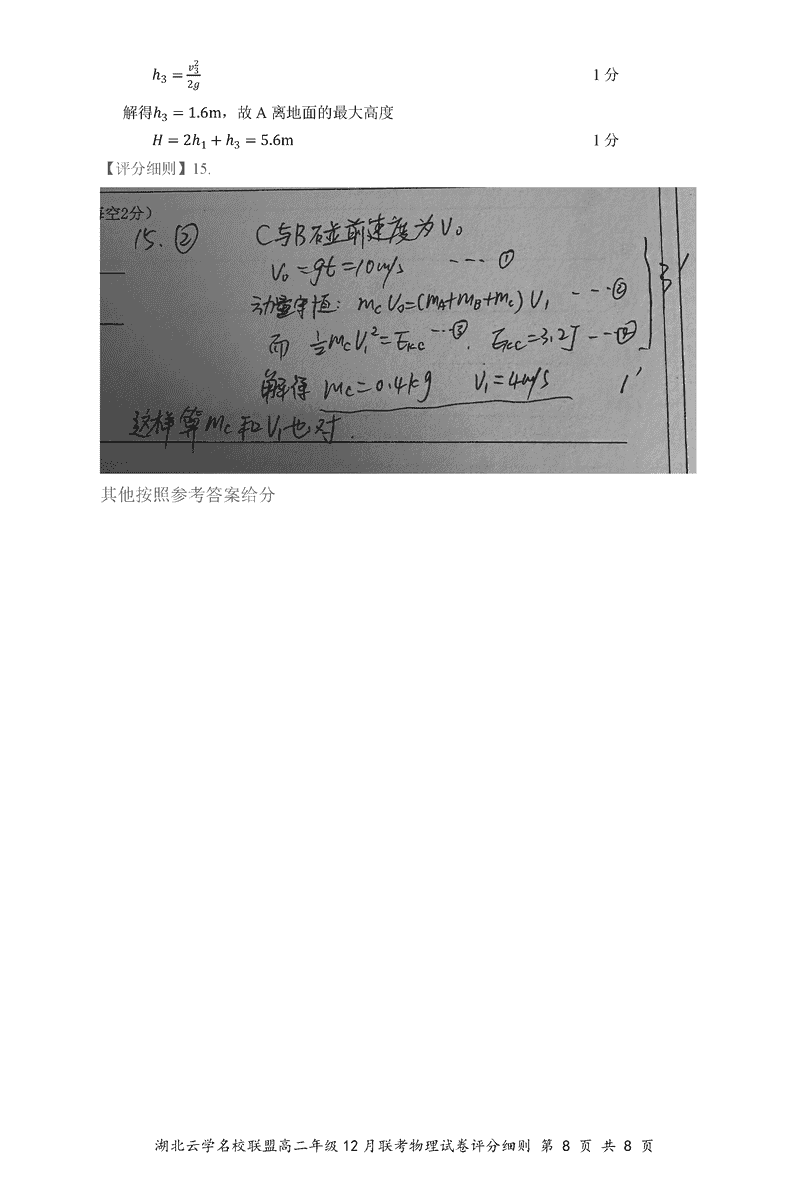 h₃ = v₃²/2g 1 分
解得h₃ = 1.6m，故 A 离地面的最大高度
H = 2h₁ + h₃ = 5.6m 1 分
【评分细则】15.
每空2分）
15. ② C与B碰前速度为V₀
V₀=gt=10m/s ---- ①
动量守恒: mcV₀=(mA+mB+mc)V₁ ---② 3′
而 ½mcV₁²=Ekc ---③. Ekc=3.2J ---④
解得 mc=0.4kg V₁=4m/s 1′
这样算mc和V₁也对.
其他按照参考答案给分
湖北云学名校联盟高二年级 12 月联考物理试卷评分细则 第 8 页 共 8 页